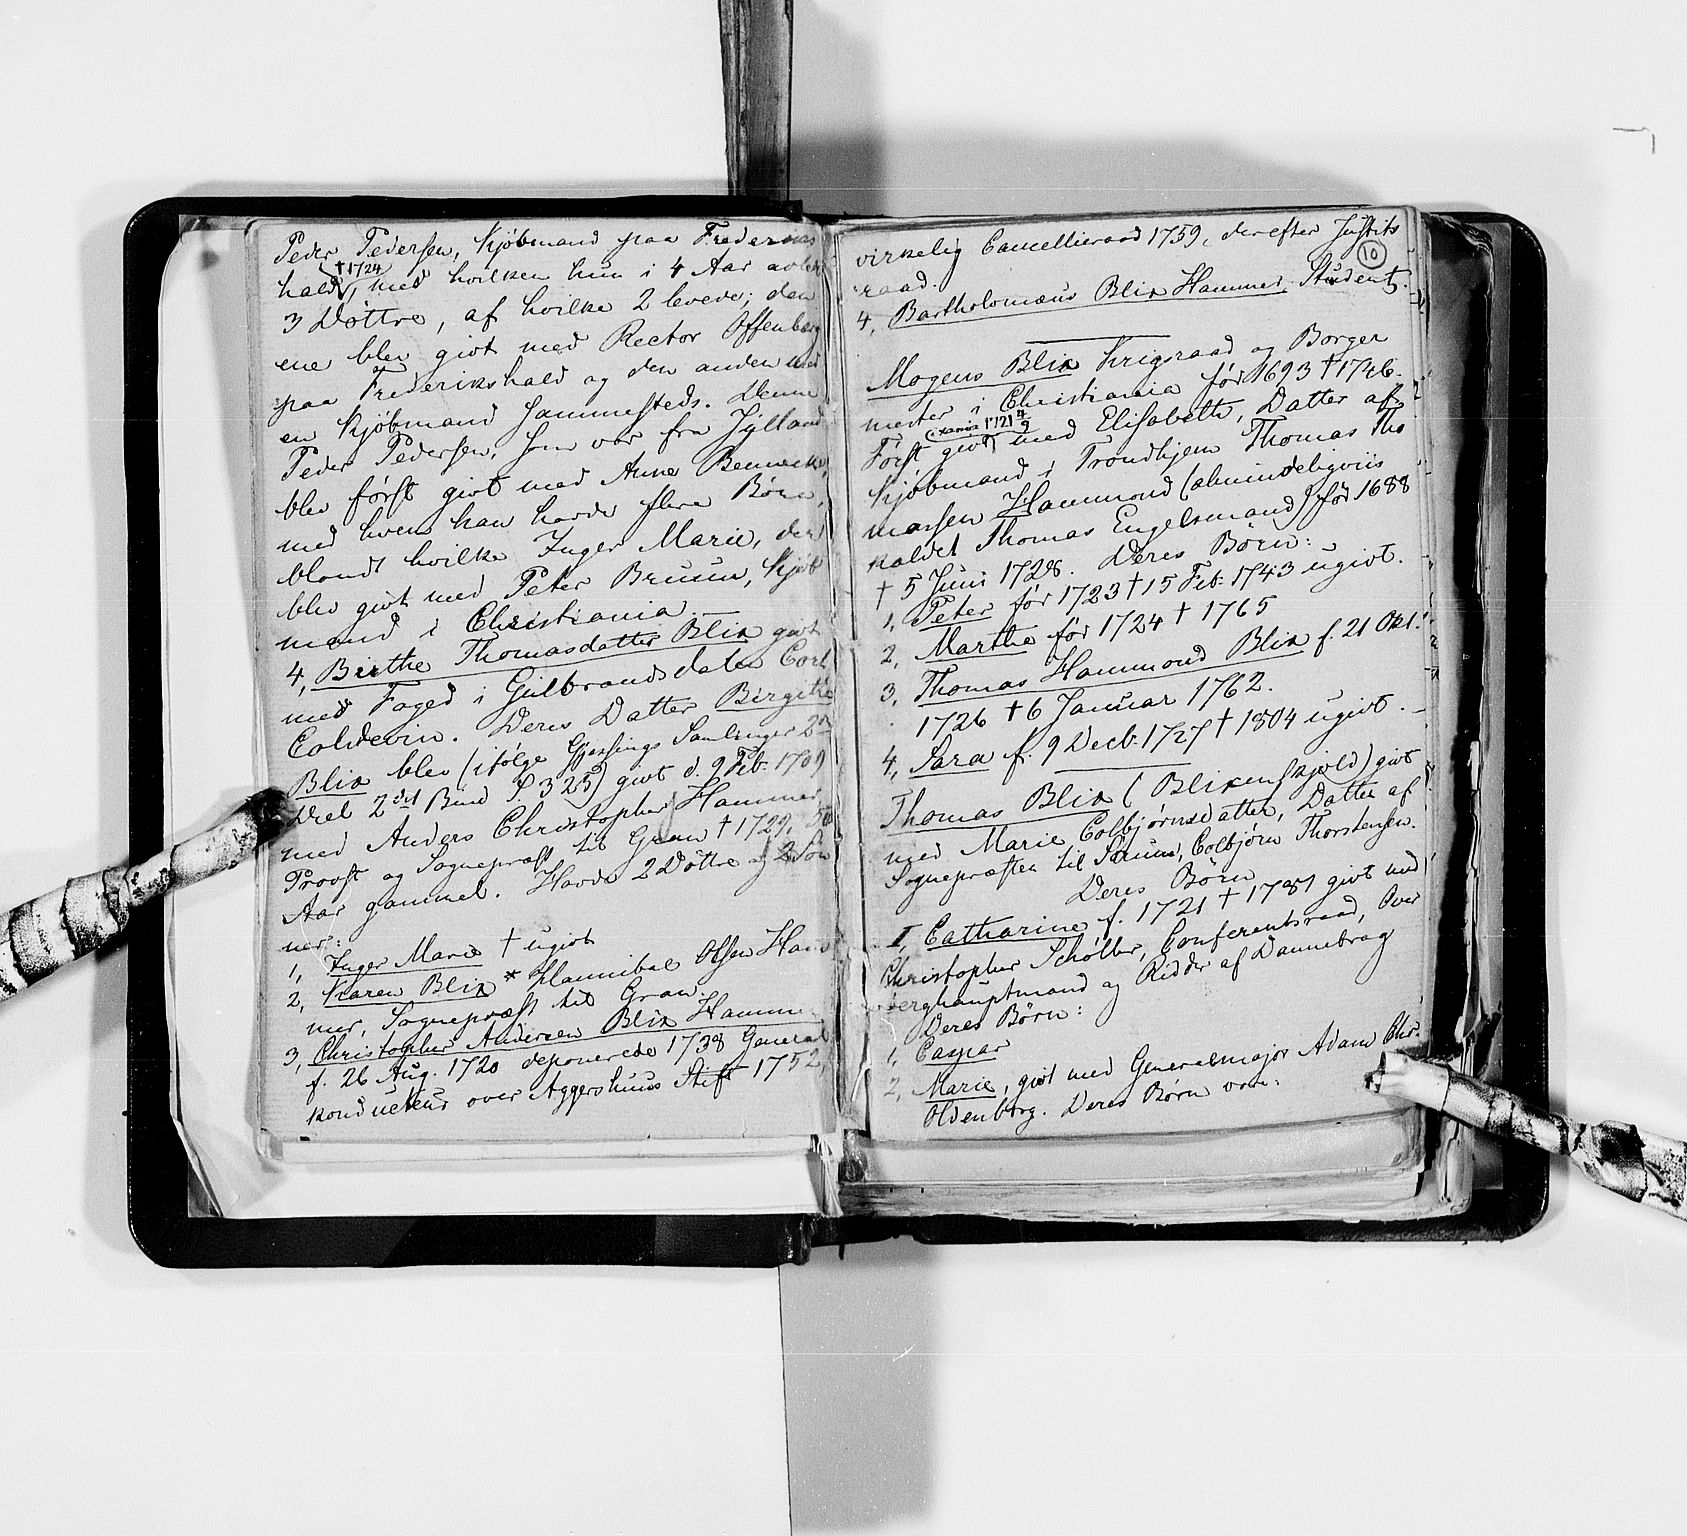 Peder Pedersen, Kjøbmand paa Frederiks
hald, †1724 med hvilken hun i 4 Aar avlede
3 Døttre, af hvilke 2 levede; den
ene blev givt med Rector Offenberg
paa Frederikshald og den anden med
en Kjøbmand Hammesteds. Denne
Peder Pedersen, som var fra Jylland
blev først givt med Anne Bennecke,
med hvem han havde flere Børn,
blandt hvilke Inger Marie, der
blev givt med Peter Bruun, Kjøb
mand i Christiania.
4, Birthe Thomasdatter Blix givt
med Foged i Gulbrandsdalen Corl
Coldevin. Deres Datter Birgithe
Blix blev (ifølge Gjessings Samlinger 2den
Deel 2det Bind S 325) givt d. 9 Feb. 1709
med Anders Christopher Hammer,
Provst og Sognepræst til Gran †1729, 50
Aar gammel. Havde 2 Døttre og 2 Søn
ner:
1, Inger Marie † ugivt
2, Karen Blix * Hannibal Olsen Ham
mer, Sognepræst til Gran.
3, Christopher Andersen Blix Hammer
f. 26 Aug. 1720 deponerede 1738 General
konducteur over Aggershuus Stift 1752,
10
virkelig Cancellieraad 1759, derefter Justits
raad.
4, Bartholomæus Blix Hammer, Student.
Mogens Blix Krigsraad og Borger
mester i Christiania før 1693 †1746.
Først givt med Elisabeth, Datter af
Kjøbmand i Trondhjem Thomas Tho
massen Hammond (almindeligviis
kaldet Thomas Engelsmand) før 1688
† 5 Juni 1728. Deres Børn:
1, Peter før 1723 † 15 Feb. 1743 ugivt.
2, Marthe før 1724 † 1765
3, Thomas Hammond Blix f. 21 Okt.
1726 † 6 Januar 1762.
4, Sara f. 9 Decb. 1727 † 1804 ugivt.
Thomas Blix (Blixenskjold) givt
med Marie Colbjørnsdatter, Datter af
Sognepræsten til Sørum, Colbjørn Thorstensen.
Deres Børn
I, Catharine f. 1721 † 1781 givt med
Christopher Schøller, Conferentsraad, Over
berghauptmand og Ridder af Dannebrog
Deres Børn:
1, Caspar
2, Marie, givt med Generalmajor Adam Chr.
Oldenborg. Deres Børn vare: